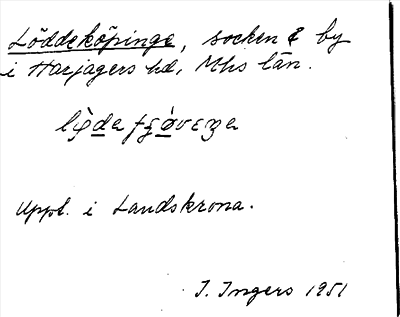 Löddeköpinge, socken & by
i Harjagers hd, Mhs län.
Uppt. i Landskrona.
I. Ingers 1951